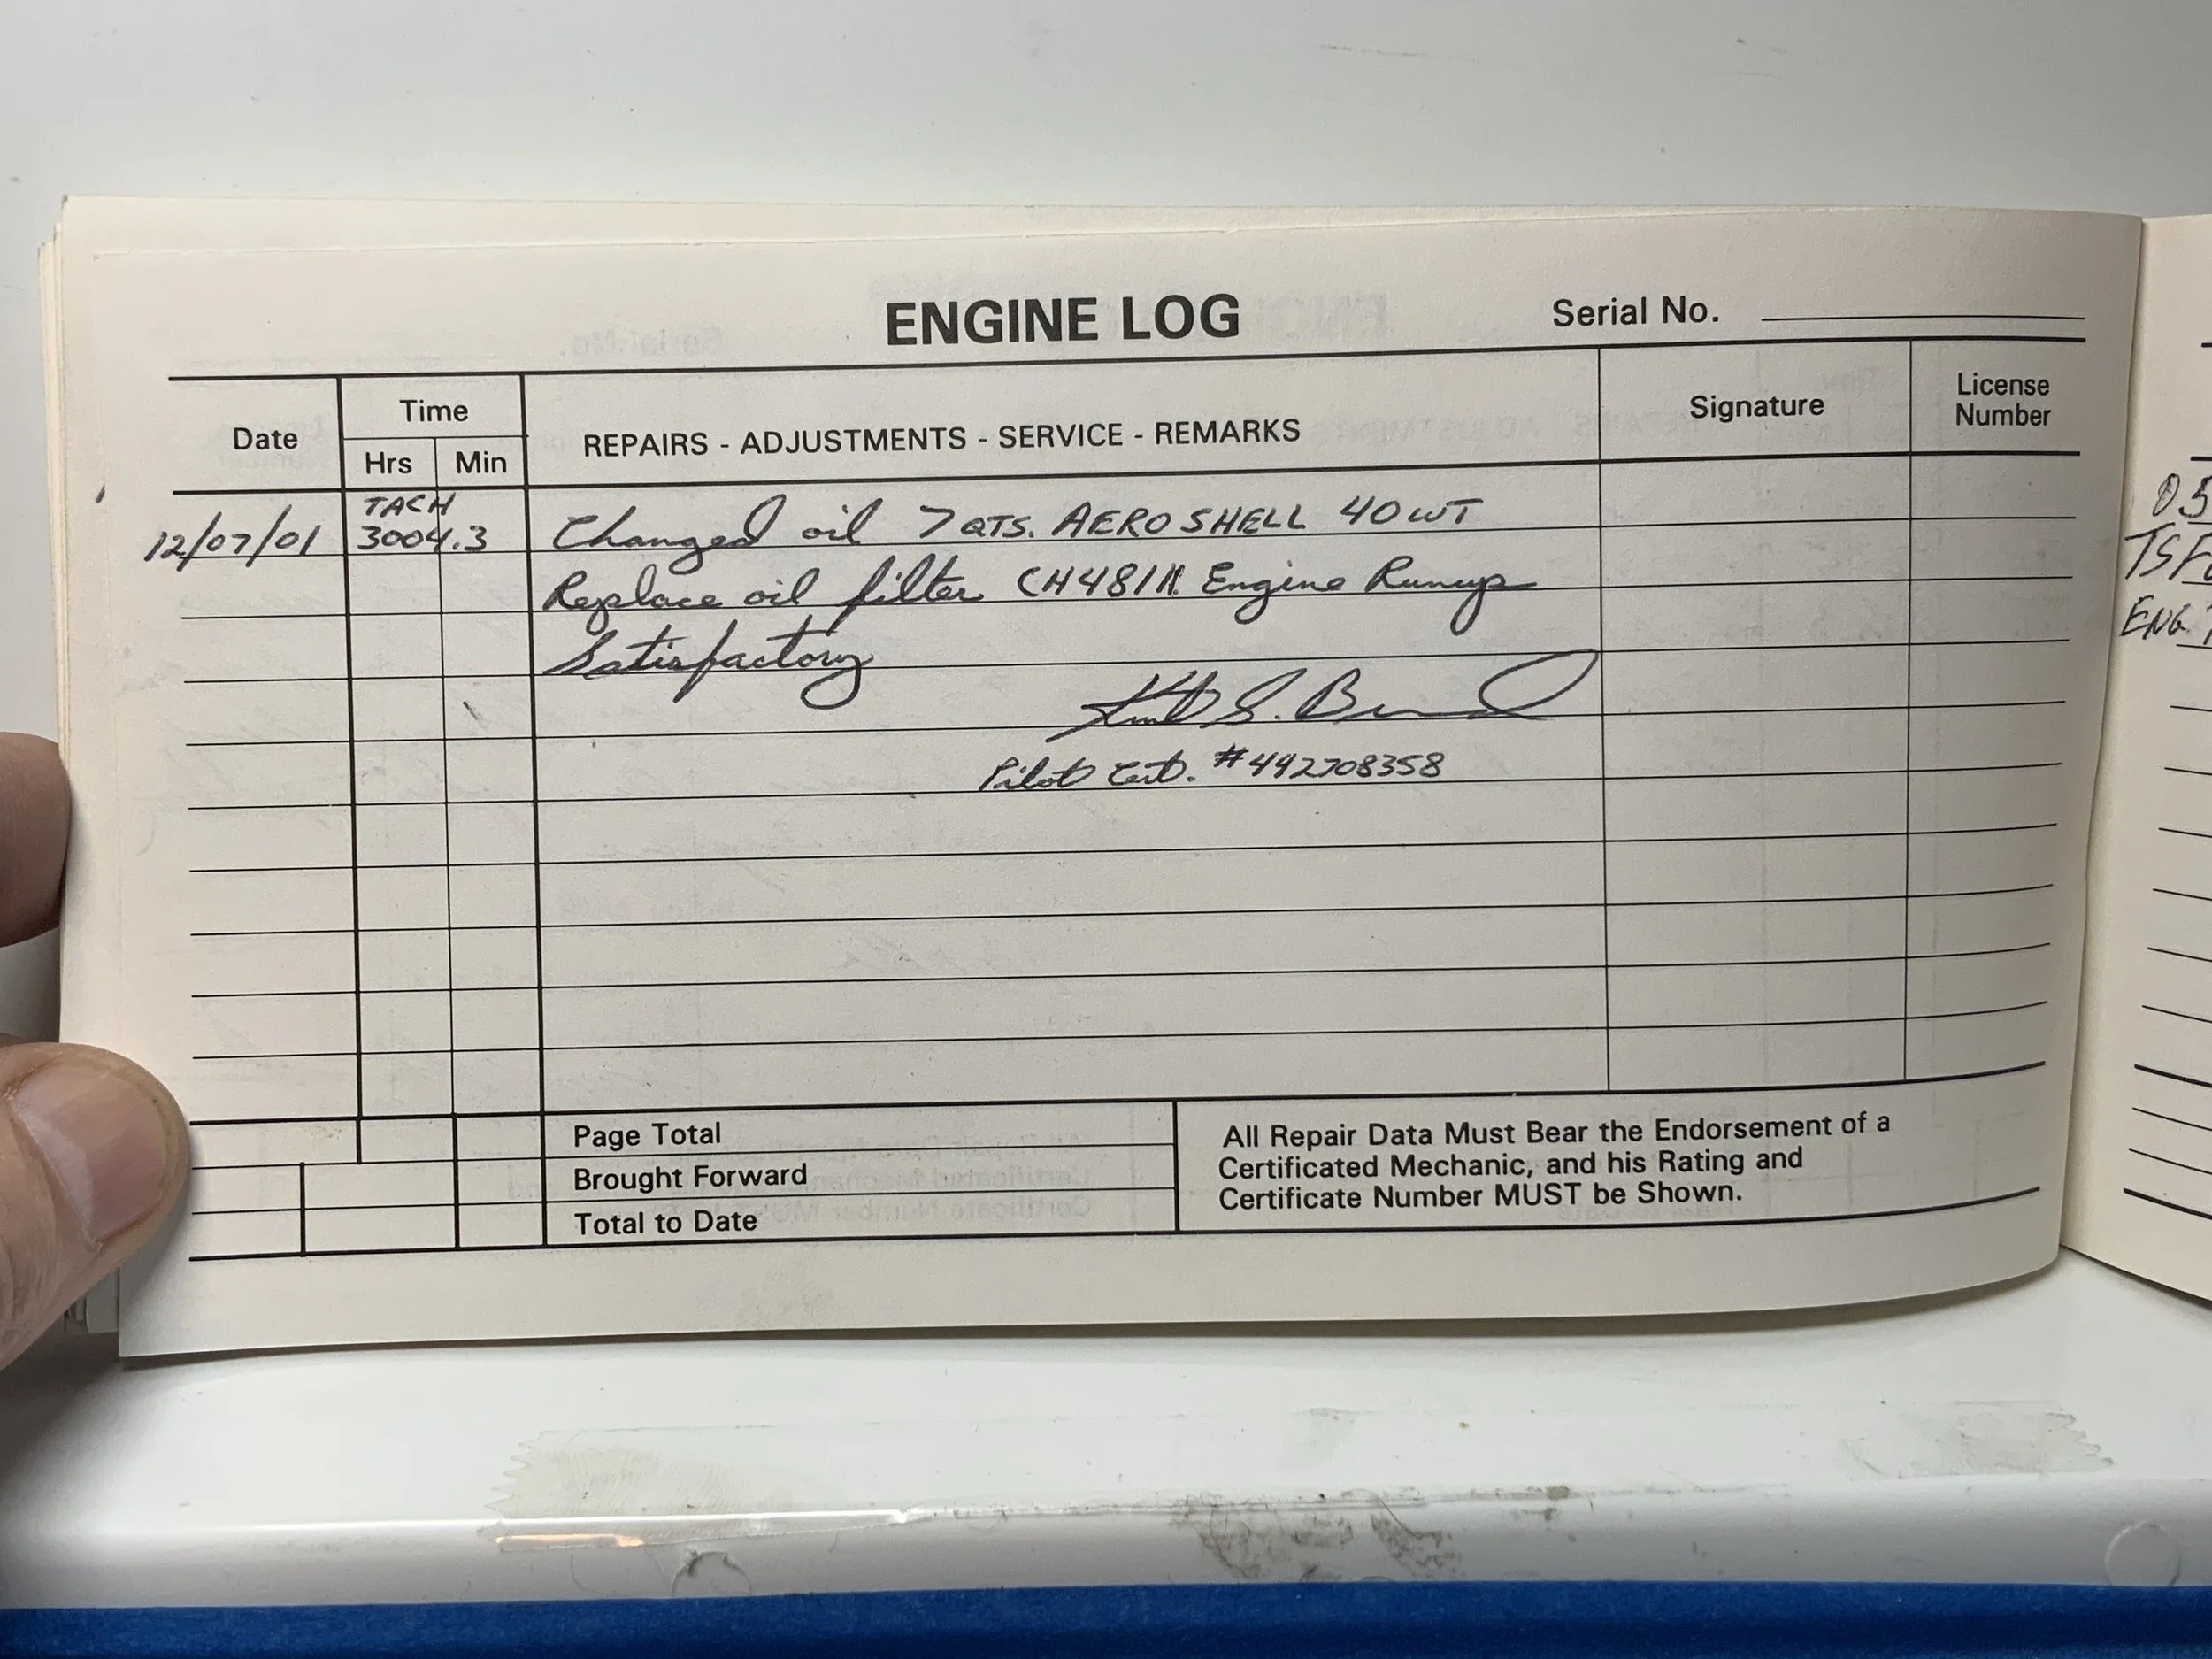 ENGINE LOG
Serial No.
Date
Time
Hrs
Min
REPAIRS - ADJUSTMENTS - SERVICE - REMARKS
Signature
License
Number
12/07/01
TACH
3004.3
Changed oil 7 QTS. AEROSHELL 40WT
Replace oil filter Engine Runup
Satisfactory
Pilot Cert. #442708358
Page Total
Brought Forward
Total to Date
All Repair Data Must Bear the Endorsement of a
Certificated Mechanic, and his Rating and
Certificate Number MUST be Shown.
05
ENG